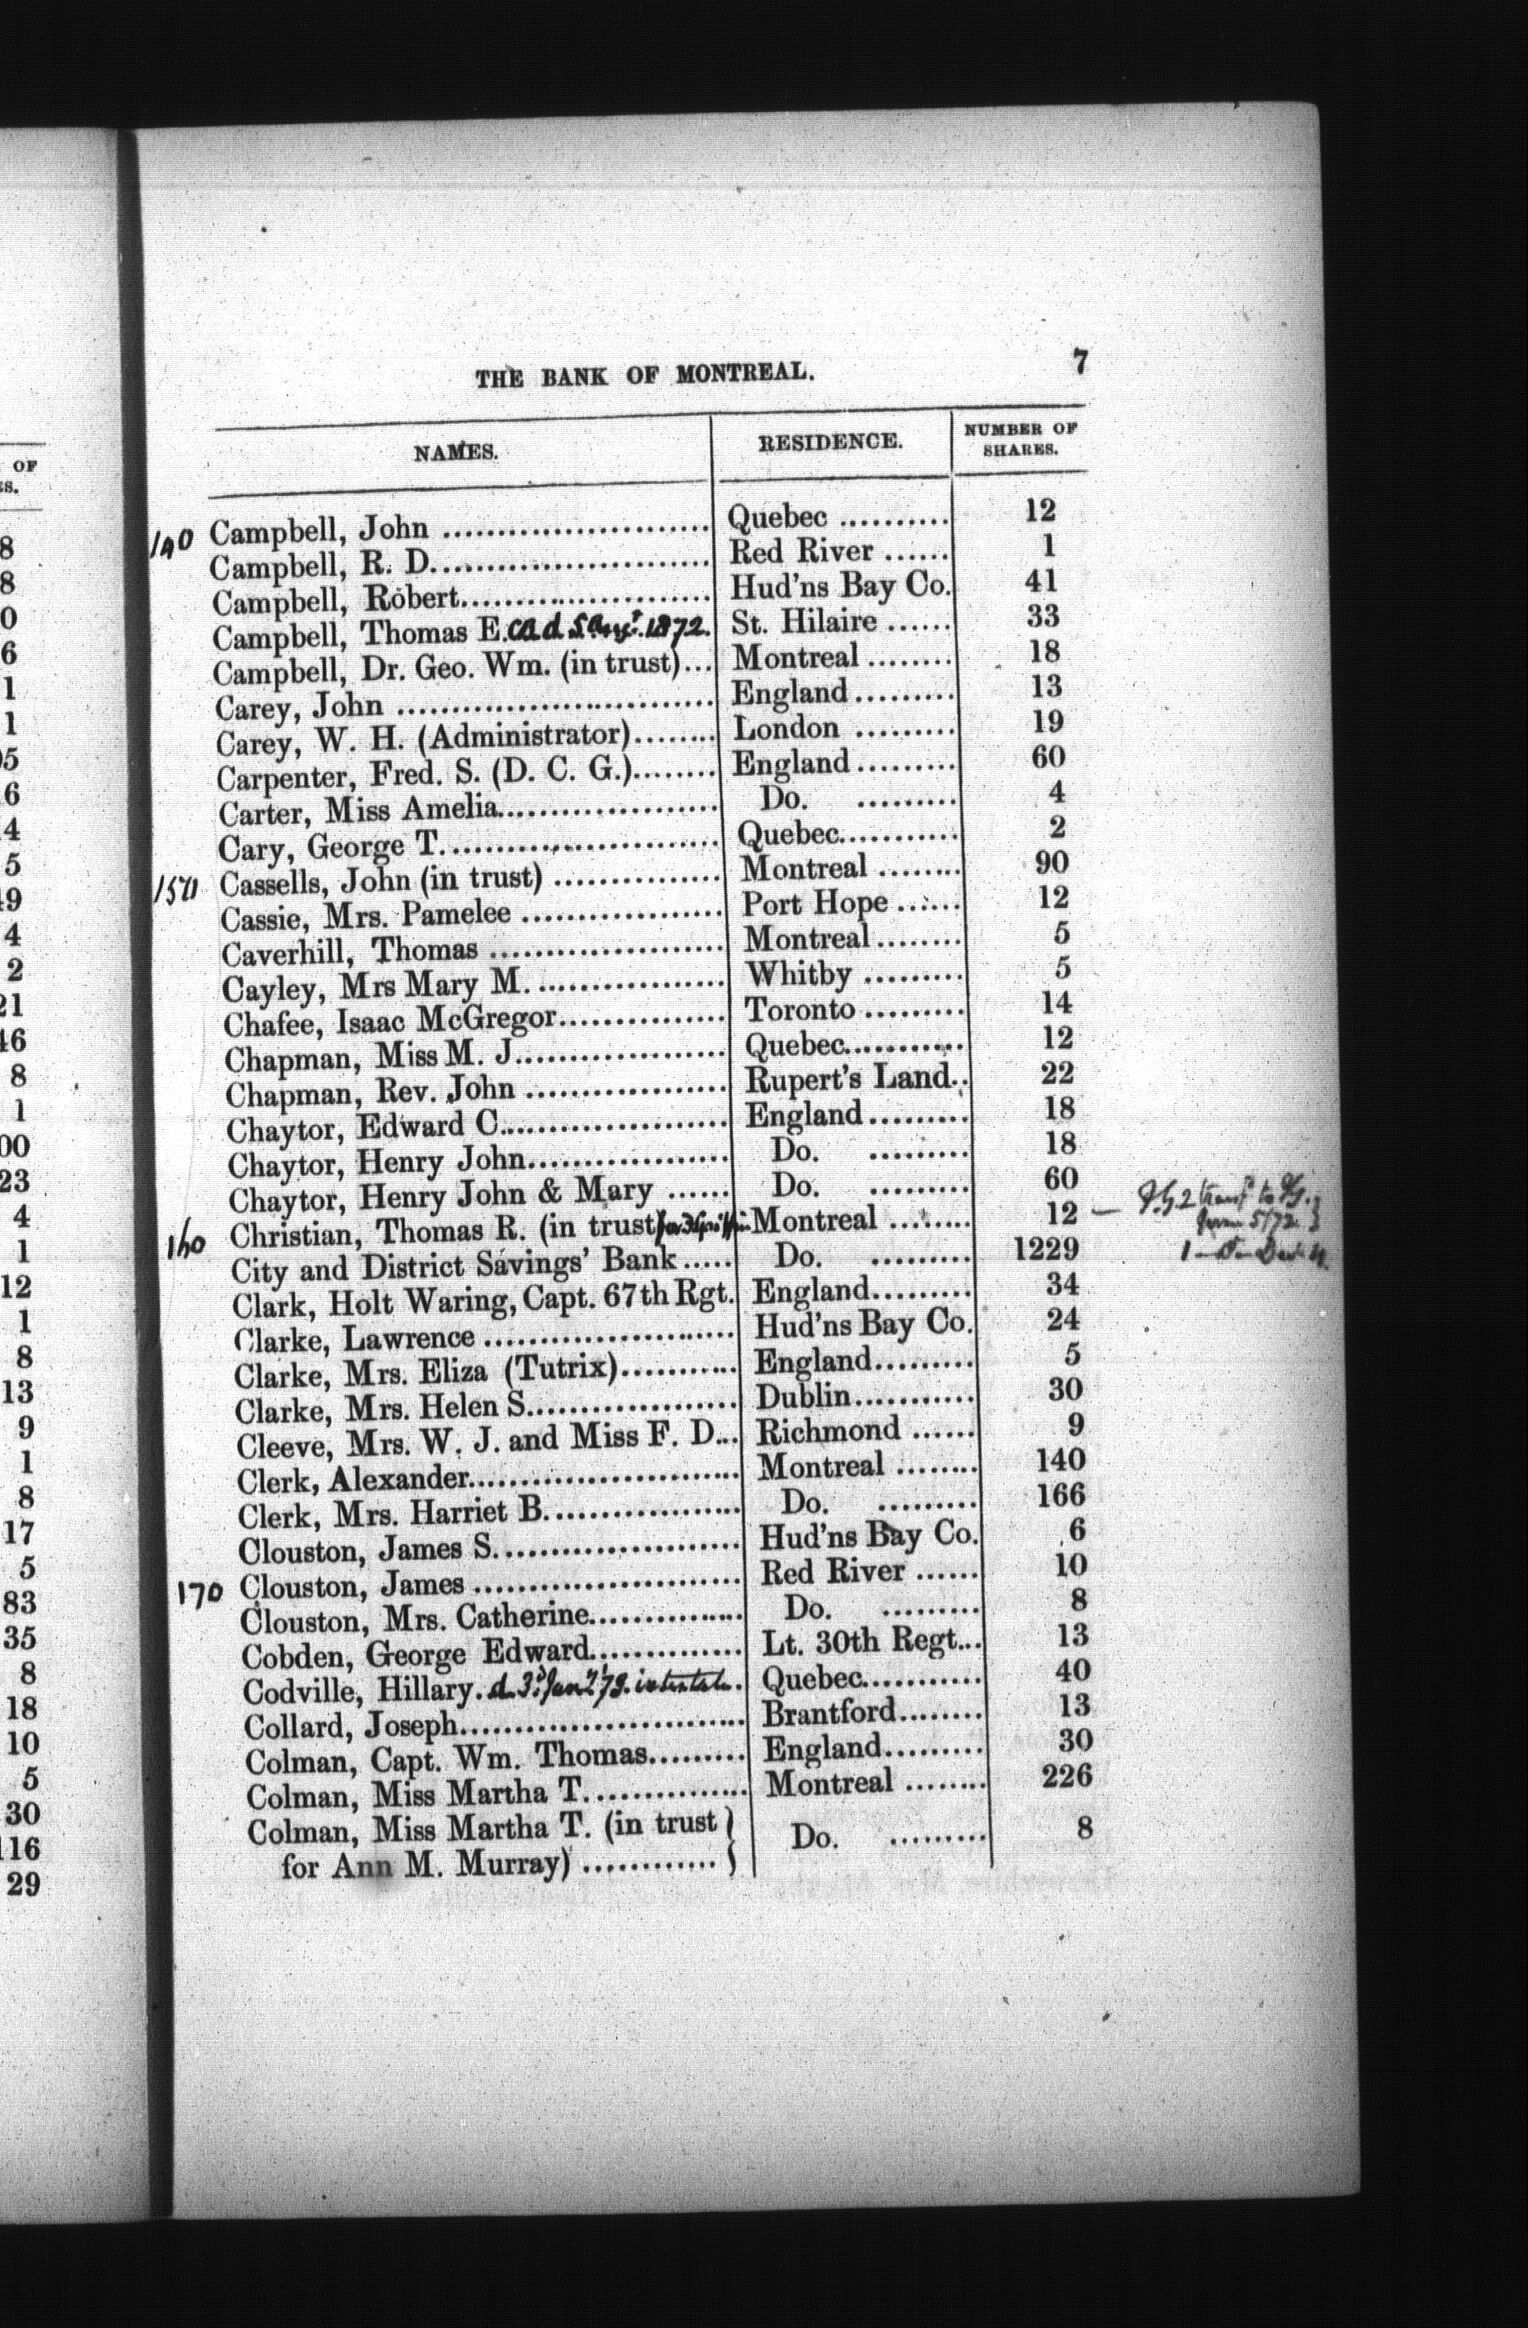 THE BANK OF MONTREAL. 7
NAMES. RESIDENCE. NUMBER OF SHARES.
140 Campbell, John ........................ Quebec .......... 12
Campbell, R. D. ........................ Red River ...... 1
Campbell, Robert ........................ Hud'ns Bay Co. 41
Campbell, Thomas E. d. 5 Augt. 1872. St. Hilaire ...... 33
Campbell, Dr. Geo. Wm. (in trust)... Montreal ........ 18
Carey, John ........................ England ......... 13
Carey, W. H. (Administrator)........ London ......... 19
Carpenter, Fred. S. (D. C. G.)........ England ......... 60
Carter, Miss Amelia.................... Do. ......... 4
Cary, George T. ........................ Quebec........... 2
150 Cassells, John (in trust) ............... Montreal ........ 90
Cassie, Mrs. Pamelee .................. Port Hope ...... 12
Caverhill, Thomas ..................... Montreal ........ 5
Cayley, Mrs Mary M. ................. Whitby ......... 5
Chafee, Isaac McGregor............... Toronto ......... 14
Chapman, Miss M. J................... Quebec........... 12
Chapman, Rev. John .................. Rupert's Land.. 22
Chaytor, Edward C..................... England ......... 18
Chaytor, Henry John.................. Do. ......... 18
Chaytor, Henry John & Mary ...... Do. ......... 60
160 Christian, Thomas R. (in trust) for Griffin Montreal ........ 12 — 2 transf to
June 5/72
City and District Savings' Bank ..... Do. ......... 1229 1
Clark, Holt Waring, Capt. 67th Rgt. England......... 34
Clarke, Lawrence ..................... Hud'ns Bay Co. 24
Clarke, Mrs. Eliza (Tutrix)........... England......... 5
Clarke, Mrs. Helen S.................. Dublin........... 30
Cleeve, Mrs. W. J. and Miss F. D... Richmond ...... 9
Clerk, Alexander........................ Montreal ........ 140
Clerk, Mrs. Harriet B. ................. Do. ......... 166
Clouston, James S. ..................... Hud'ns Bay Co. 6
170 Clouston, James ........................ Red River ...... 10
Clouston, Mrs. Catherine.............. Do. ......... 8
Cobden, George Edward.............. Lt. 30th Regt... 13
Codville, Hillary. d. 3d Jany '73. intestate. Quebec........... 40
Collard, Joseph........................ Brantford........ 13
Colman, Capt. Wm. Thomas......... England......... 30
Colman, Miss Martha T. .............. Montreal ........ 226
Colman, Miss Martha T. (in trust } Do. ......... 8
for Ann M. Murray) ............ }
OF
ES.
8
8
0
6
1
1
05
16
4
5
49
4
2
21
46
8
1
00
23
4
1
12
1
8
13
9
1
8
17
5
83
35
8
18
10
5
30
116
29